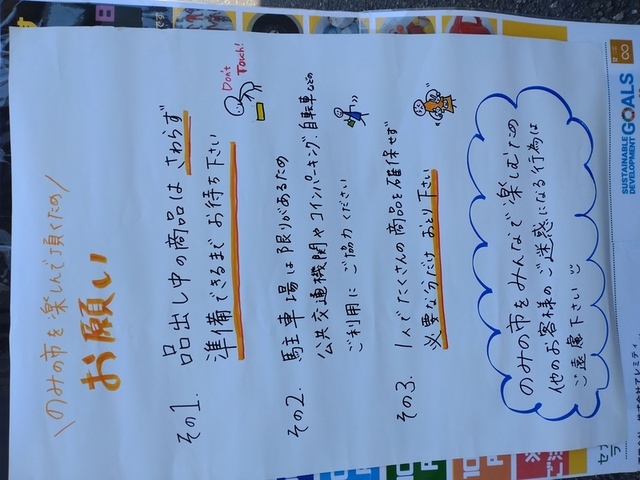 \のみの市を楽しんで頂くための/
お願い
その1. 品出し中の商品は さわらず
準備できるまで お待ち下さい
Don't
Touch!
その2. 駐車場は限りがあるため
公共交通機関やコインパーキング、自転車などの
ご利用に ご協力ください
その3. 1人でたくさんの商品を確保せず
必要な分だけ おとり下さい
のみの市をみんなで楽しむため
他のお客様のご迷惑になる行為は
ご遠慮下さい
SUSTAINABLE
DEVELOPMENT
GOALS